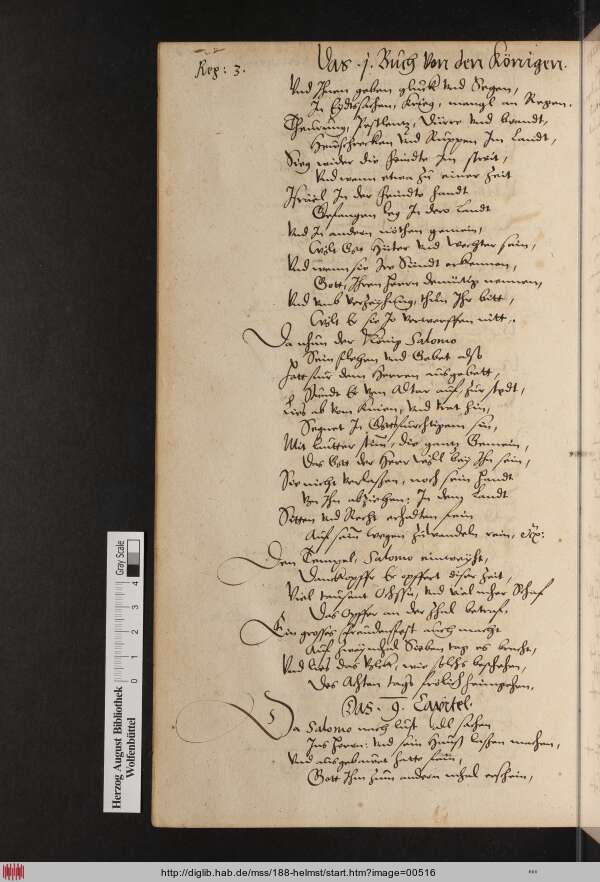 Reg: 3.
Das .j. Buch Von den Königen.
Vnd Ihnen geben gluck vnd Segen,
In Eydtssachen, Krieg, mangl an Regen.
Theurung, Pestlentz, Dürre vnd brandt,
Hewschrecken vnd Ruppen Im Landt,
Sieg wider die Feindte Im streit,
Vnd wenn etwa zu einer Zeit
Israel In der Feindte handt
Gefangen leg In dero Landt
Vnd In andern nöthen gemein,
Wölt Gott Hüter vnd Wechter sein,
Vnd wenn sie Ire Sündt erkennen,
Gott, Ihren Herrn demütig nennen,
Vnd vmb verzeyhung, thün Ihr bitt,
Wölt Er sie Jo verwerffen nitt.
Da nhun der König Salomo
Sein flehen vnd Gebet also
Hatt für dem Herren ausgebett,
Stundt Er vom Altar auf zur stedt,
Lies ab vom Knien, vnd trat hin,
Segnet In Gottsfurchtigem sin,
Mit lautter stim, die gantz Gemein,
Das Gott der Herr wöll bey Ihn sein,
Sie nicht verlassen, noch sein handt
Von Ihn abziehen: In dem Landt
Sitten vnd Recht erhaltten fein
Auf sein wegen zuwandeln rein,
Den Tempel, Salomo einweyht,
Danckopffer Er opffert diser Zeit,
Viel tausent Ochssn, vnd viel mher Schaf
Das Opffer an der Zhal betraf.
Ein grosses Freudenfest auch macht
Auf zweymhal Sieben tag es bracht,
Vnd liet das Volck, wie solchs beschehen,
Des Achten tags frölich heimgehen.
Das .9. Capitel.
Da Salomo nach lust vill sachen
Ins Herrn vnd sein Hauß lassen machen,
Vnd ausgebawet hatte fein,
Gott Ihm zum andern mhal erschein,
Gray Scale
0 1 2 3 4
Herzog August Bibliothek
Wolfenbüttel
http://diglib.hab.de/mss/188-helmst/start.htm?image=00516